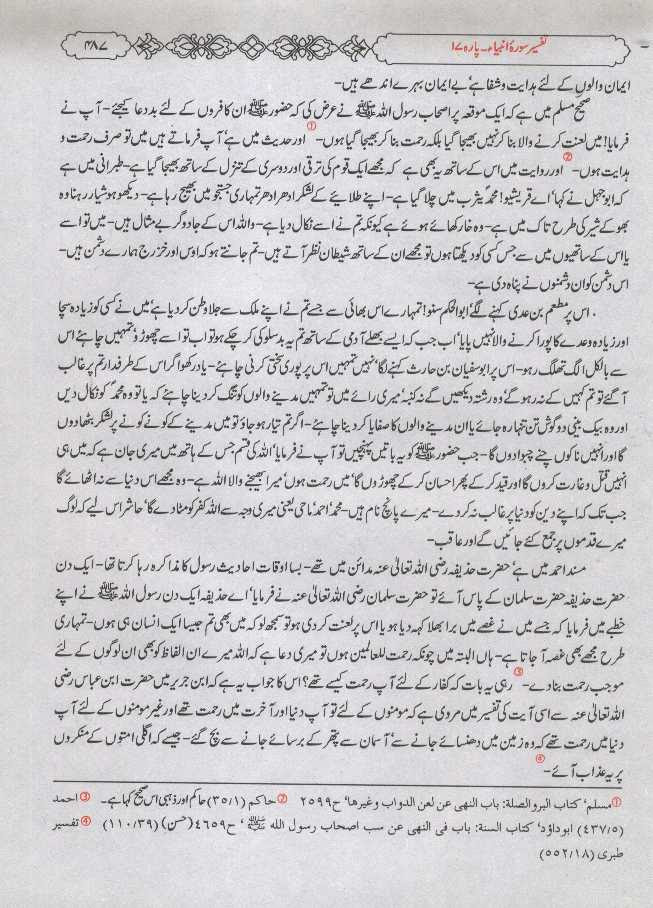 تفسیر سورۂ انبیاء۔ پارہ ۱۷
۴۸۷
ایمان والوں کے لئے ہدایت وشفا ہے' بے ایمان بہرے اندھے ہیں۔
صحیح مسلم میں ہے کہ ایک موقعہ پر اصحاب رسول اللہ ﷺ نے عرض کی کہ حضور ﷺ ان کافروں کے لئے بددعا کیجئے۔ آپ نے
فرمایا! میں لعنت کرنے والا بنا کر نہیں بھیجا گیا بلکہ رحمت بنا کر بھیجا گیا ہوں۔ ① اور حدیث میں ہے' آپ فرماتے ہیں میں تو صرف رحمت و
ہدایت ہوں۔ ② اور روایت میں اس کے ساتھ یہ بھی ہے کہ مجھے ایک قوم کی ترقی اور دوسری کے تنزل کے ساتھ بھیجا گیا ہے۔ طبرانی میں ہے
کہ ابوجہل نے کہا' اے قریشیو! محمد یثرب میں چلا گیا ہے۔ اپنے طلائیے کے لشکر ادھر ادھر تمہاری جستجو میں بھیج رہا ہے۔ دیکھو ہوشیار رہنا وہ
بھوکے شیر کی طرح تاک میں ہے۔ وہ خار کھائے ہوئے ہے کیونکہ تم نے اسے نکال دیا ہے۔ واللہ اس کے جادوگر بے مثال ہیں۔ میں تو اسے
یا اس کے ساتھیوں میں سے جس کسی کو دیکھتا ہوں تو مجھے ان کے ساتھ شیطان نظر آتے ہیں۔ تم جانتے ہو کہ اوس اور خزرج ہمارے دشمن ہیں۔
اس دشمن کو ان دشمنوں نے پناہ دی ہے۔
اس پر مطعم بن عدی کہنے لگے' ابوالحکم سنو! تمہارے اس بھائی سے جسے تم نے اپنے ملک سے جلاوطن کر دیا ہے' میں نے کسی کو زیادہ سچا
اور زیادہ وعدے کا پورا کرنے والا نہیں پایا' اب جب کہ ایسے بھلے آدمی کے ساتھ تم یہ بدسلوکی کر چکے ہو تو اب تو اسے چھوڑو' تمہیں چاہئے اس
سے بالکل الگ تھلگ رہو۔ اس پر ابوسفیان بن حارث کہنے لگا' نہیں تمہیں اس پر پوری سختی کرنی چاہئے۔ یاد رکھو اگر اس کے طرفدار تم پر غالب
آ گئے تو تم کہیں کے نہ رہو گے' وہ رشتہ دیکھیں گے نہ کنبہ' میری رائے میں تو تمہیں مدینے والوں کو تنگ کر دینا چاہئے کہ یا تو وہ محمد کو نکال دیں
اور وہ بیک بینی دو گوش تن تنہا رہ جائے یا ان مدینے والوں کا صفایا کر دینا چاہئے۔ اگر تم تیار ہو جاؤ تو میں مدینے کے کونے کونے پر لشکر بٹھا دوں
گا اور انہیں ناکوں چنے چبوا دوں گا۔ جب حضور ﷺ کو یہ باتیں پہنچیں تو آپ نے فرمایا' اللہ کی قسم جس کے ہاتھ میں میری جان ہے کہ میں ہی
انہیں قتل و غارت کروں گا اور قید کر کے پھر احسان کر کے چھوڑوں گا' میں رحمت ہوں' میرا بھیجنے والا اللہ ہے۔ وہ مجھے اس دنیا سے نہ اٹھائے گا
جب تک کہ اپنے دین کو دنیا پر غالب نہ کر دے۔ میرے پانچ نام ہیں۔ محمد' احمد' ماحی یعنی میری وجہ سے اللہ کفر کو مٹا دے گا' حاشر اس لیے کہ لوگ
میرے قدموں پر جمع کئے جائیں گے اور عاقب۔
مسند احمد میں ہے' حضرت حذیفہ رضی اللہ تعالیٰ عنہ مدائن میں تھے۔ بسا اوقات احادیث رسول کا مذاکرہ رہا کرتا تھا۔ ایک دن
حضرت حذیفہ حضرت سلمان کے پاس آئے تو حضرت سلمان رضی اللہ تعالیٰ عنہ نے فرمایا' اے حذیفہ ایک دن رسول اللہ ﷺ نے اپنے
خطبے میں فرمایا کہ جسے میں نے غصے میں برا بھلا کہہ دیا ہو یا اس پر لعنت کر دی ہو تو سمجھ لو کہ میں بھی تم جیسا ایک انسان ہی ہوں۔ تمہاری
طرح مجھے بھی غصہ آ جاتا ہے۔ ہاں البتہ میں چونکہ رحمت للعالمین ہوں تو میری دعا ہے کہ اللہ میرے ان الفاظ کو بھی ان لوگوں کے لئے
موجب رحمت بنا دے۔ ③ رہی یہ بات کہ کفار کے لئے آپ رحمت کیسے تھے؟ اس کا جواب یہ ہے کہ ابن جریر میں حضرت ابن عباس رضی
اللہ تعالیٰ عنہ سے اسی آیت کی تفسیر میں مروی ہے کہ مومنوں کے لئے تو آپ دنیا اور آخرت میں رحمت تھے اور غیر مومنوں کے لئے آپ
دنیا میں رحمت تھے کہ وہ زمین میں دھنسائے جانے سے' آسمان سے پتھر کے برسائے جانے سے بچ گئے۔ جیسے کہ اگلی امتوں کے منکروں
پر یہ عذاب آئے۔ ④
① مسلم' کتاب البر والصلة: باب النهی عن لعن الدواب وغيرها' ح ۲۵۹۹ ② حاکم (۱/۳۵) حاکم اور ذہبی اسے صحیح کہا ہے۔ ③ احمد
(۵/۴۳۷) ابوداؤد' کتاب السنة: باب فی النهی عن سب اصحاب رسول الله ﷺ' ح ۴۶۵۹ (حسن) (۳۹/۱۱۰) ④ تفسیر
طبری (۱۸/۵۵۲)